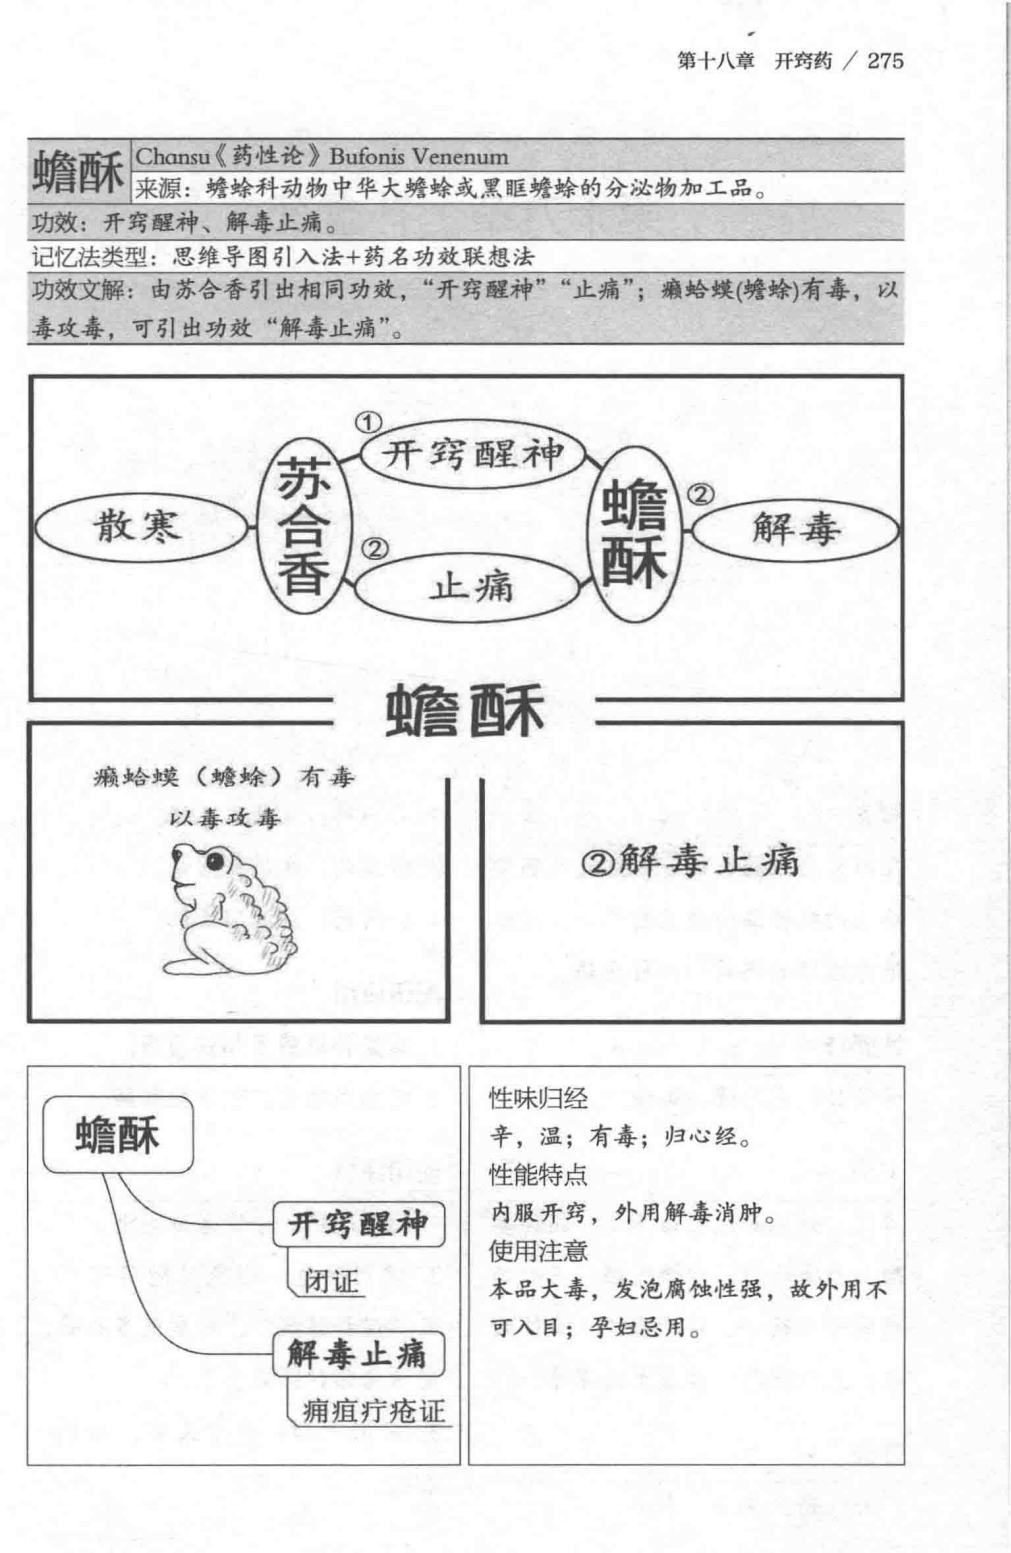 第十八章 开窍药 / 275
蟾酥
Chansu《药性论》Bufonis Venenum
来源：蟾蜍科动物中华大蟾蜍或黑眶蟾蜍的分泌物加工品。
功效：开窍醒神、解毒止痛。
记忆法类型：思维导图引入法+药名功效联想法
功效文解：由苏合香引出相同功效，“开窍醒神”“止痛”；癞蛤蟆(蟾蜍)有毒，以
毒攻毒，可引出功效“解毒止痛”。
散寒
苏合香
①
开窍醒神
②
止痛
蟾酥
②
解毒
蟾酥
癞蛤蟆（蟾蜍）有毒
以毒攻毒
②解毒止痛
蟾酥
开窍醒神
闭证
解毒止痛
痈疽疔疮证
性味归经
辛，温；有毒；归心经。
性能特点
内服开窍，外用解毒消肿。
使用注意
本品大毒，发泡腐蚀性强，故外用不
可入目；孕妇忌用。